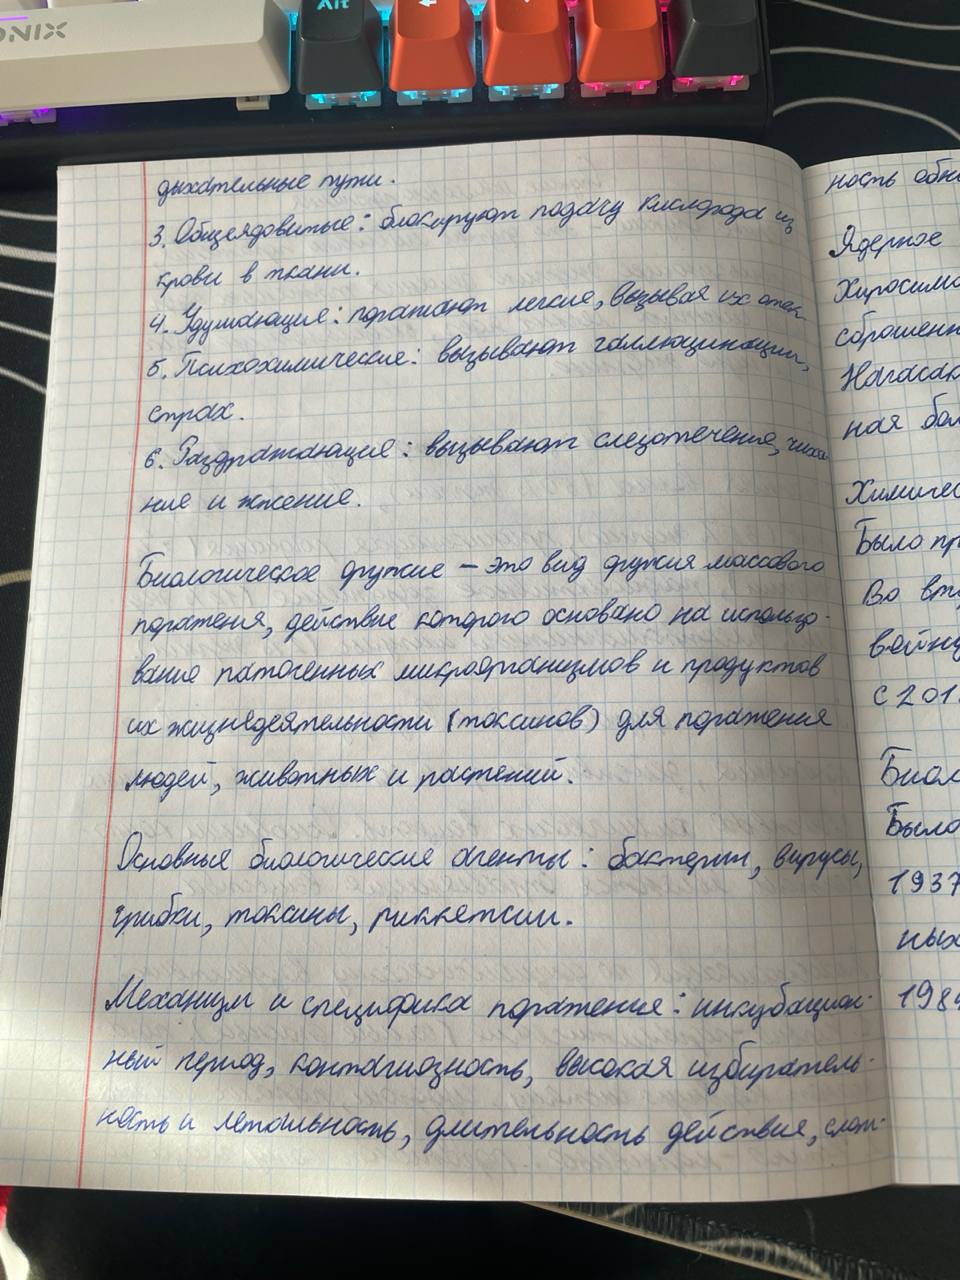 ONIX
Alt
дыхательные пути.
3. Общеядовитые: блокируют подачу кислорода из
крови в ткани.
4. Удушающие: поражают легкие, вызывая их отек.
5. Психохимические: вызывают галлюцинации,
страх.
6. Раздражающие: вызывают слезотечение, чиха-
ние и жжение.
Биологическое оружие – это вид оружия массового
поражения, действие которого основано на использо-
вание патогенных микроорганизмов и продуктов
их жизнедеятельности (токсинов) для поражения
людей, животных и растений.
Основные биологические агенты: бактерии, вирусы,
грибки, токсины, риккетсии.
Механизм и специфика поражения: инкубацион-
ный период, контагиозность, высокая избиратель-
ность и летальность, длительность действия, слож-
ность обн
Ядерное
Хиросима
сброшенн
Нагасак
ная бом
Химичес
Было пр
Во вто
войну
С 201
Биол
Было
1937
ных
198